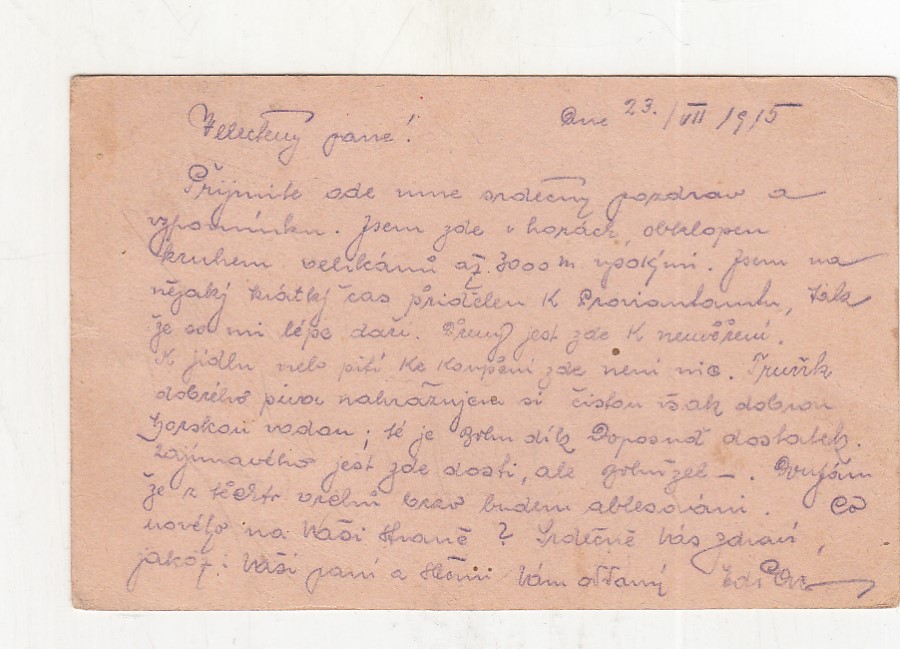 Velectěný pane! Dne 23./VII 1915
Přijměte ode mne srdečný pozdrav a
vzpomínku. Jsem zde v horách, obklopen
kruhem velikánů až 3000 m vysokými. Jsem na
nějaký krátký čas přidělen k Proviantamtu, tak
že se mi lépe daří. jest zde k neuvěření.
K jídlu nebo pití ke koupení zde není nic.
dobrého piva nahražujeme si čistou však dobrou
horskou vodou; té je Bohu dík Doposud dostatek.
Zajímavého jest zde dosti, ale Bohužel –. Doufám
že z těchto brzo budem ablesováni. Co
nového na Vaší straně? Srdečně Vás zdraví,
jakož i Vaší paní a Vám oddaný